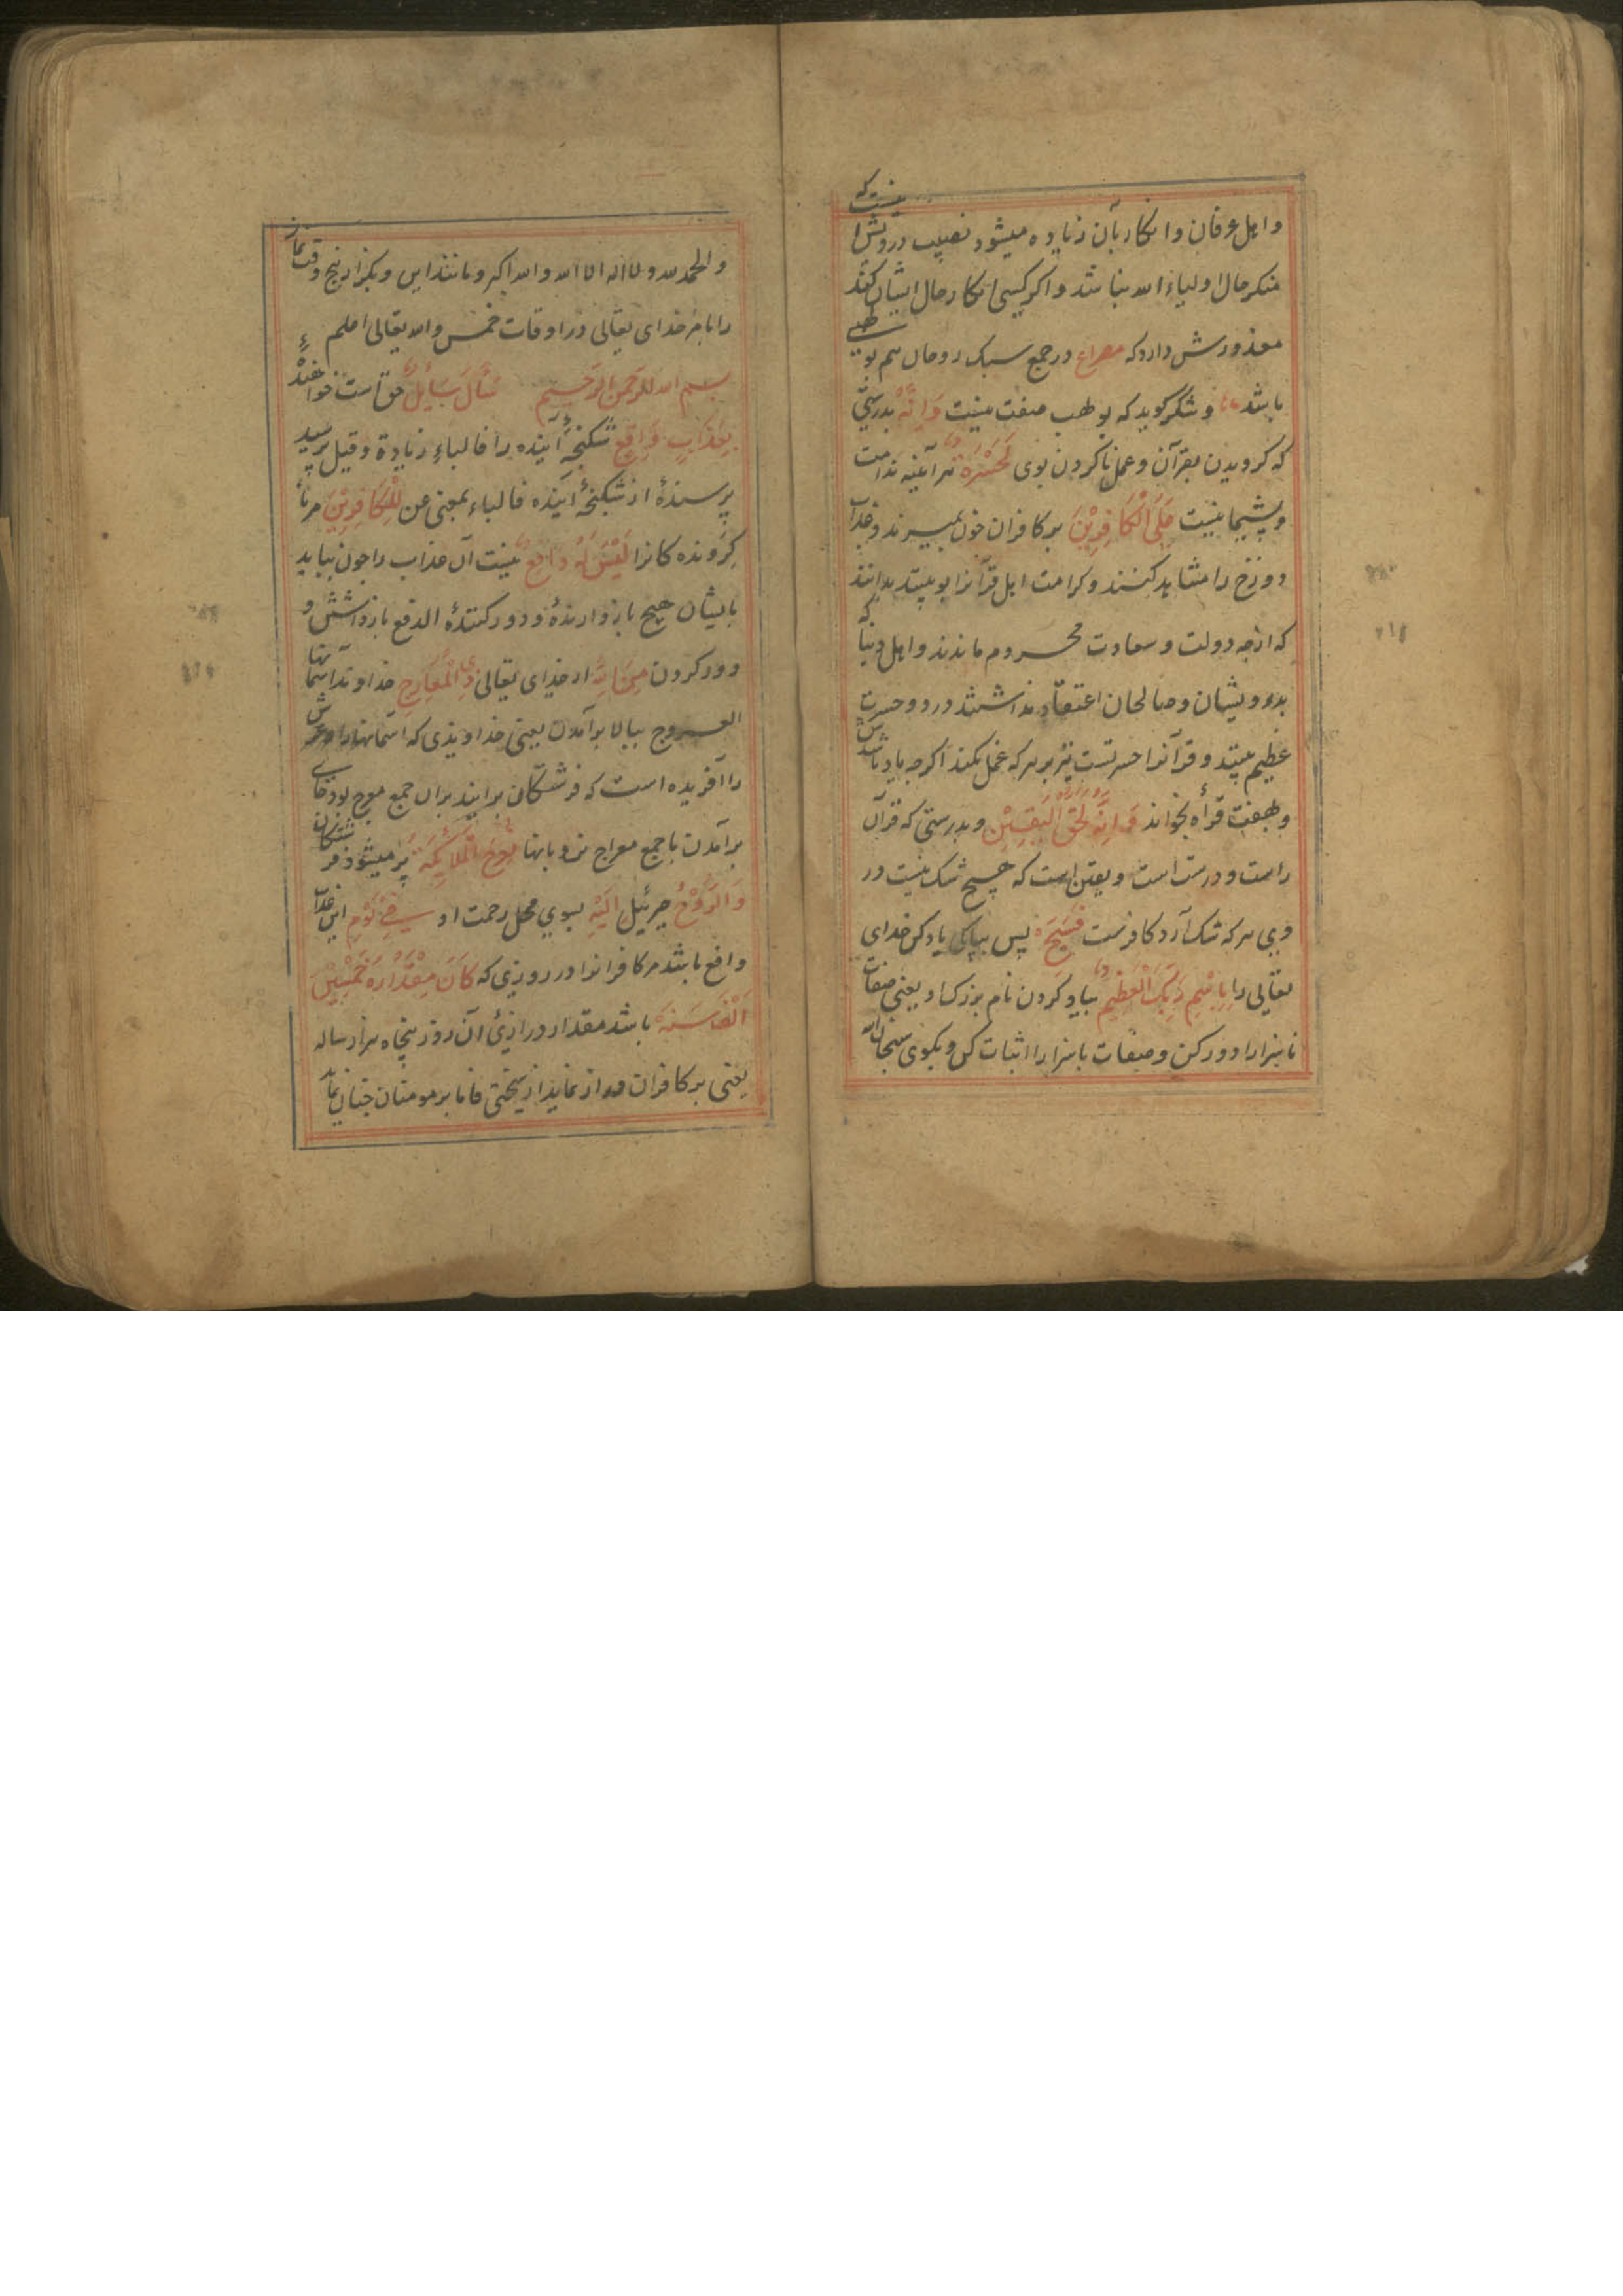 واهل عرفان وانکار بآن زیاده میشود نصیب درویش آنست که
منکر حال اولیاء الله نباشد واکر کسی انکار حال ایشان کند
معذورش دارد که مصراع در جمع سبک روحان هم بولهبی
باشد وشکر کوید که بولهب صفت نیست وَاِنَّهُ بدرستی
که کرویدن بقرآن وعمل ناکردن بوی لَحَسْرَةٌ هرآئینه ندامت
وپشیمانیست عَلَی الْکَافِرِیْنَ بر کافران چون بمیرند وعذاب
دوزخ را مشاهد کنند وکرامت اهل قرآنرا به بینند بدانند
که ازچه دولت وسعادت محروم ماندند واهل دنیا که
بدرویشان وصالحان اعتقاد نداشتند درد وحسرت
عظیم بینند وقرآنرا حسرتست نیز بر هرکه عمل نکند اکرچه یاد باشدش
وبهفت قرأه بخواند وَاِنَّهُ لَحَقُّ الْیَقِیْنِ وبدرستی که قرآن
راست ودرست است ویقین است که هیچ شک نیست در
وی هرکه شک آرد کافرست فَسَبِّحْ پس بپاکی یاد کن خدای
تعالی را بِاسْمِ رَبِّکَ الْعَظِیْمِ بیاد کردن نام بزرک او یعنی صفات
ناسزا را دور کن وصفات باسزا را اثبات کن وبکوی سبحان الله
والحمد لله ولا اله الا الله والله اکبر ومانند این وبکزار پنج وقت نماز
را بامر خدای تعالی در اوقات خمس والله تعالی اعلم
بسم الله الرحمن الرحیم سَأَلَ سَائِلٌ حق است خواهنده
بِعَذَابٍ وَاقِعٍ شکنجهٔ آینده را فالباء زیادة وقیل پرسید
پرسندهٔ از شکنجهٔ آینده فالباء بمعنی عن لِلْکَافِرِیْنَ مرنا
کرونده کانرا لَیْسَ لَهُ دَافِعٌ نیست آن عذاب را چون بیاید
بایشان هیچ بازدارندهٔ ودور کنندهٔ الدفع بازداشتن و
دور کردن مِنَ اللهِ از خدای تعالی ذِی الْمَعَارِجِ خداوند آسمانها
العروج ببالا برآمدن یعنی خداوندی که آسمانها وعرش
را آفریده است که فرشتکان برایند بران جمع معرج بود جای
برآمدن یا جمع معراج نردبانها تَعْرُجُ الْمَلٰئِکَةُ بر میشود فرشتکان
وَالرُّوْحُ جبرئیل اِلَیْهِ بسوی محل رحمت او فِیْ یَوْمٍ این عذاب
واقع باشد مر کافرانرا در روزی که کَانَ مِقْدَارُهُ خَمْسِیْنَ
اَلْفَ سَنَةٍ باشد مقدار درازیٔ آن روز پنجاه هزار ساله
یعنی بر کافران دراز نماید از سختی فاما بر مومنان چنان نماید